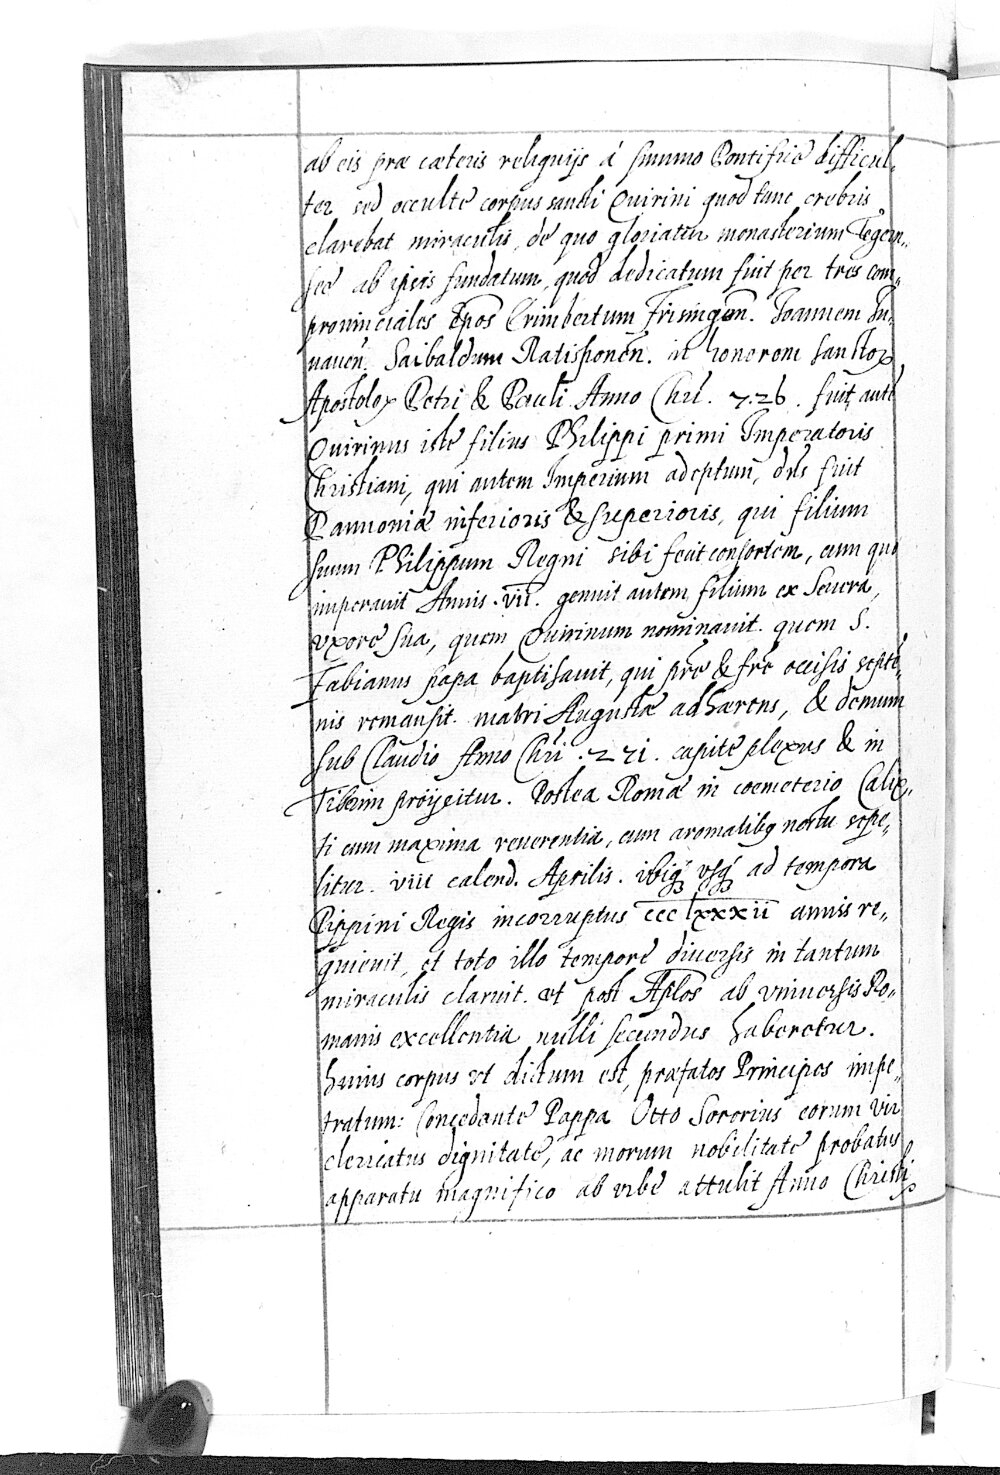 ab eis præ cæteris reliquijs á summo Pontifice difficul„
ter sed occulte corpus sancti Quirini quod tunc crebris
clarebat miraculis, de quo gloriatur monasterium Tegern„
see ab ipsis fundatum, quod dedicatum fuit per tres com„
prouinciales Ēpos Erimbertum Frisingen. Joannem Ju„
nauen. Saibaldum Ratisponen. in honorem sanctoꝝ
Apostoloꝝ Petri & Pauli Anno Chri. 7.26. fuit autē
Quirinus iste filius Philippi primi Imperatoris
Christiani, qui autem Imperium adeptum, dns fuit
Pannoniæ inferioris & superioris, qui filium
suum Philippum Regni sibi fecit consortem, cum quo
imperauit Annis .vii. genuit autem filium ex Seuera,
vxore sua, quem Quirinum nominauit. quem S.
Fabianus papa baptisauit, qui prē & frē occisis septē„
nis remansit. matri Augustæ adhærens, & demum
sub Claudio Anno Chri .271. capite plexus & in
Tiberim proijcitur. Postea Romæ in coemeterio Calix„
ti cum maxima reuerentia, cum aromatibꝫ noctu sepe„
litur. viii calend. Aprilis. ibiqꝫ vsqꝫ ad tempora
Pippini Regis incorruptus cccclxxxii annis re„
quieuit, et toto illo tempore diuersis in tantum
miraculis claruit. et post Aplos ab vniuersis Ro„
manis excellentia nulli secundus haberetur.
huius corpus vt dictum est, præfatos Principes impe„
tratum: Concedente Pappa Otto Sororius eorum vir
clericatus dignitate, ac morum nobilitate probatus
apparatu magnifico ab vrbe attulit Anno Christi